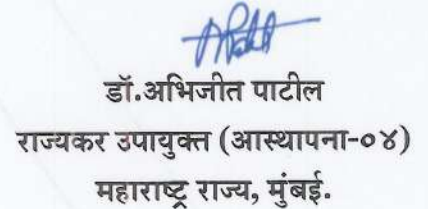 डॉ.अभिजीत पाटील
राज्यकर उपायुक्त (आस्थापना-०४)
महाराष्ट्र राज्य, मुंबई.